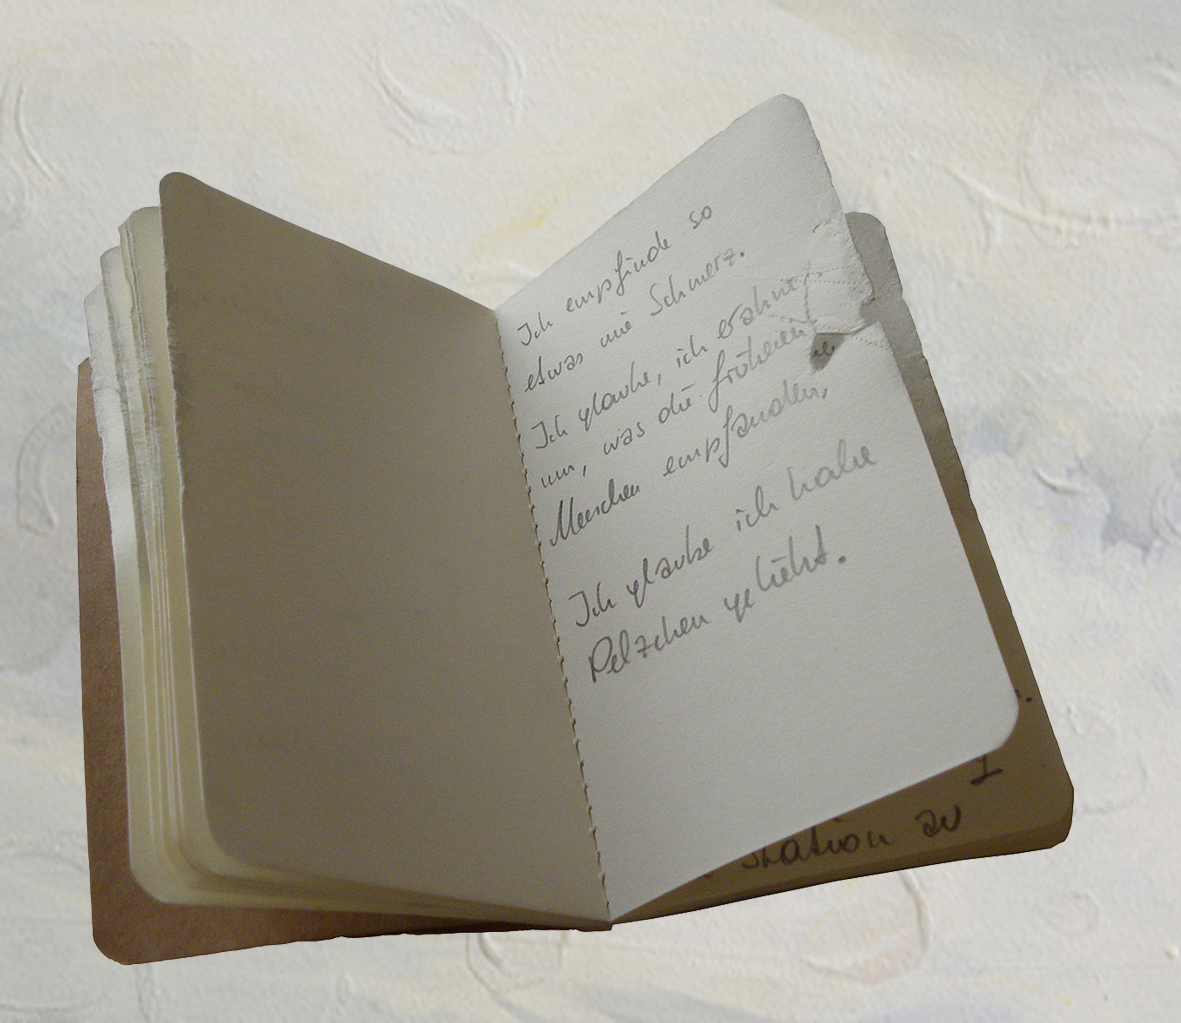 Ich empfinde so
etwas wie Schmerz.
Ich glaube, ich erahne
nun, was die früheren
Menschen empfanden,
Ich glaube ich habe
Pelzchen geliebt.
station zu